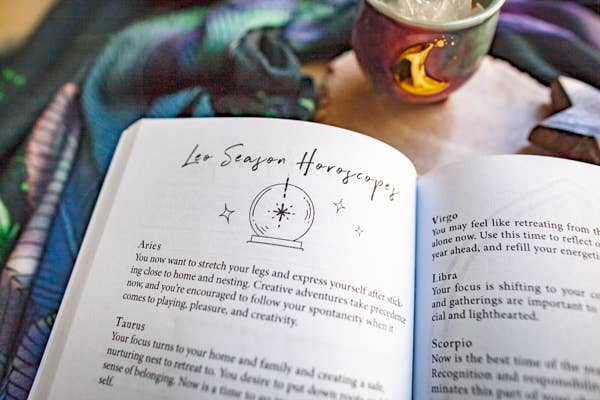 Leo Season Horoscopes
Aries
You now want to stretch your legs and express yourself after stick-
ing close to home and nesting. Creative adventures take precedence
now, and you're encouraged to follow your spontaneity when it
comes to playing, pleasure, and creativity.
Taurus
Your focus turns to your home and family and creating a safe,
nurturing nest to retreat to. You desire to put down roots
sense of belonging. Now is a time to go
self.
Virgo
You may feel like retreating from
alone now. Use this time to reflect
year ahead, and refill your
Libra
Your focus is shifting to your
and gatherings are important to
cial and lighthearted.
Scorpio
Now is the best time of the
Recognition and
minates this part of your